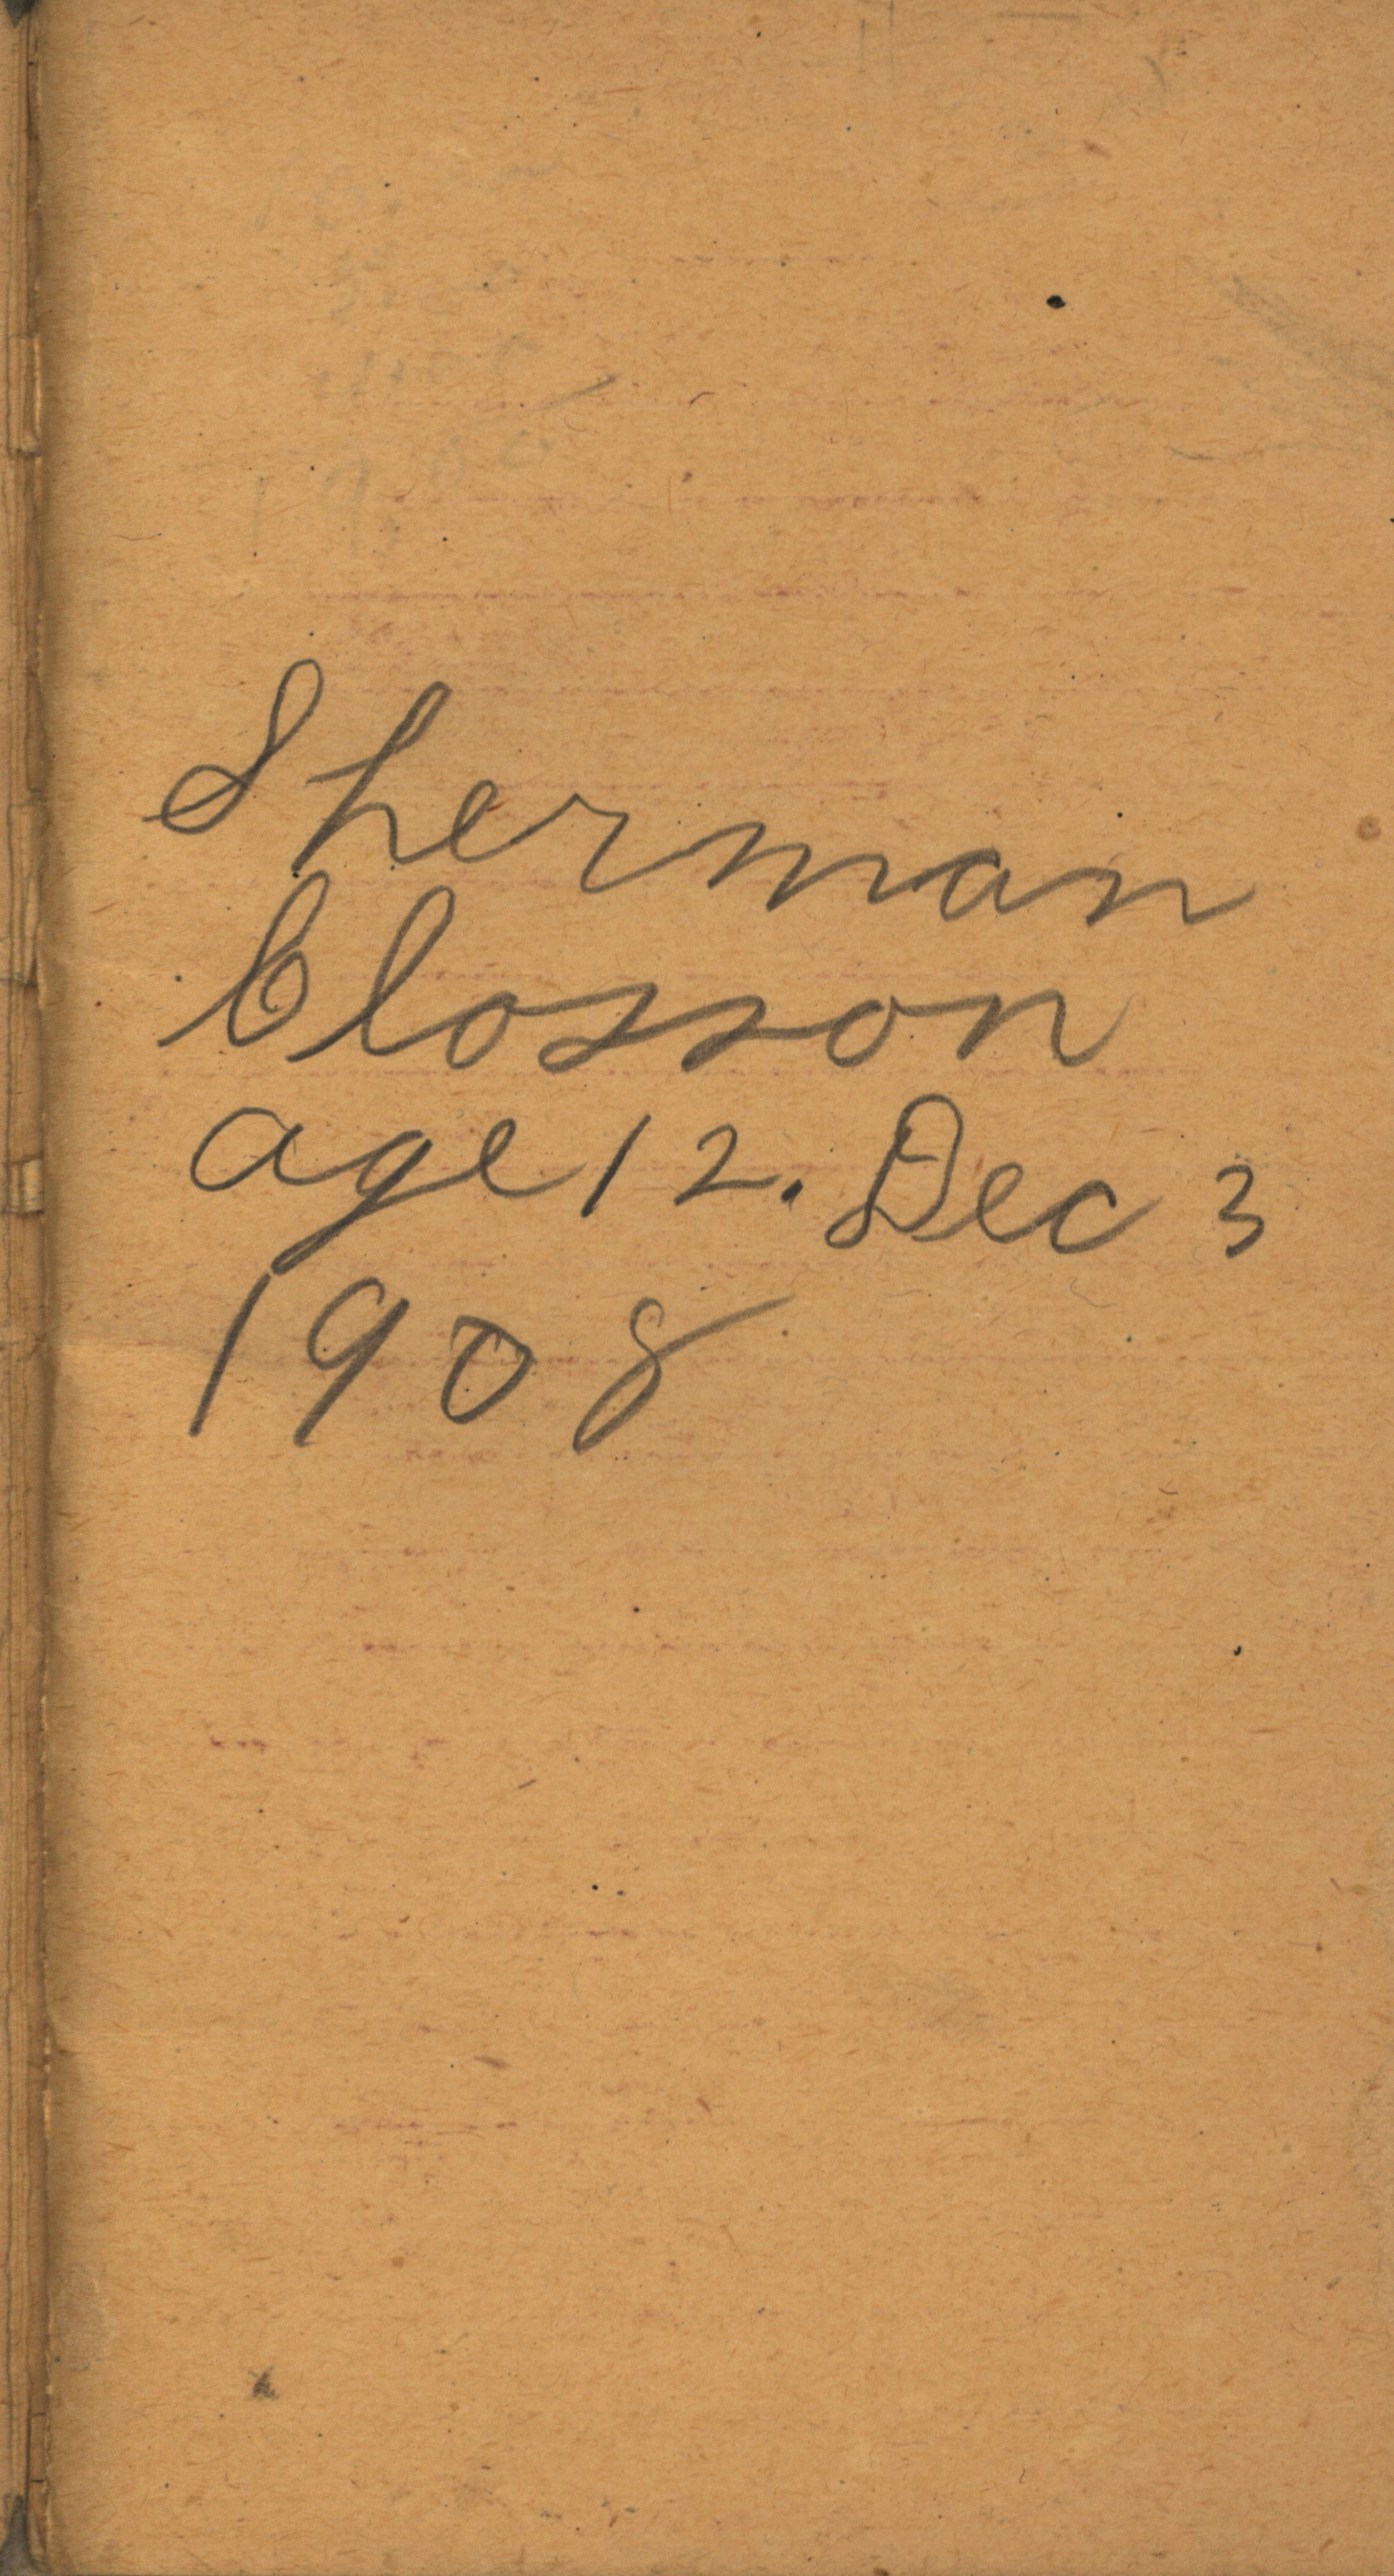 Sherman
Closson
age 12. Dec 3
1908